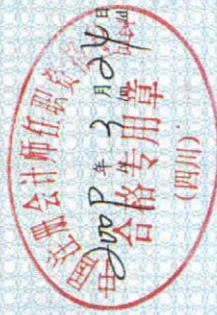 中国注册会计师任职资
2009年3月24日
合格专用章
(四川)